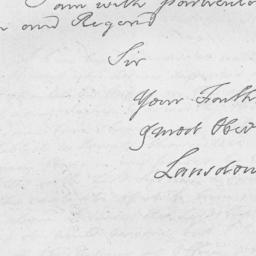 I am with particula
and Regard
Sir
Your Faith
& most Obe
Lansdow